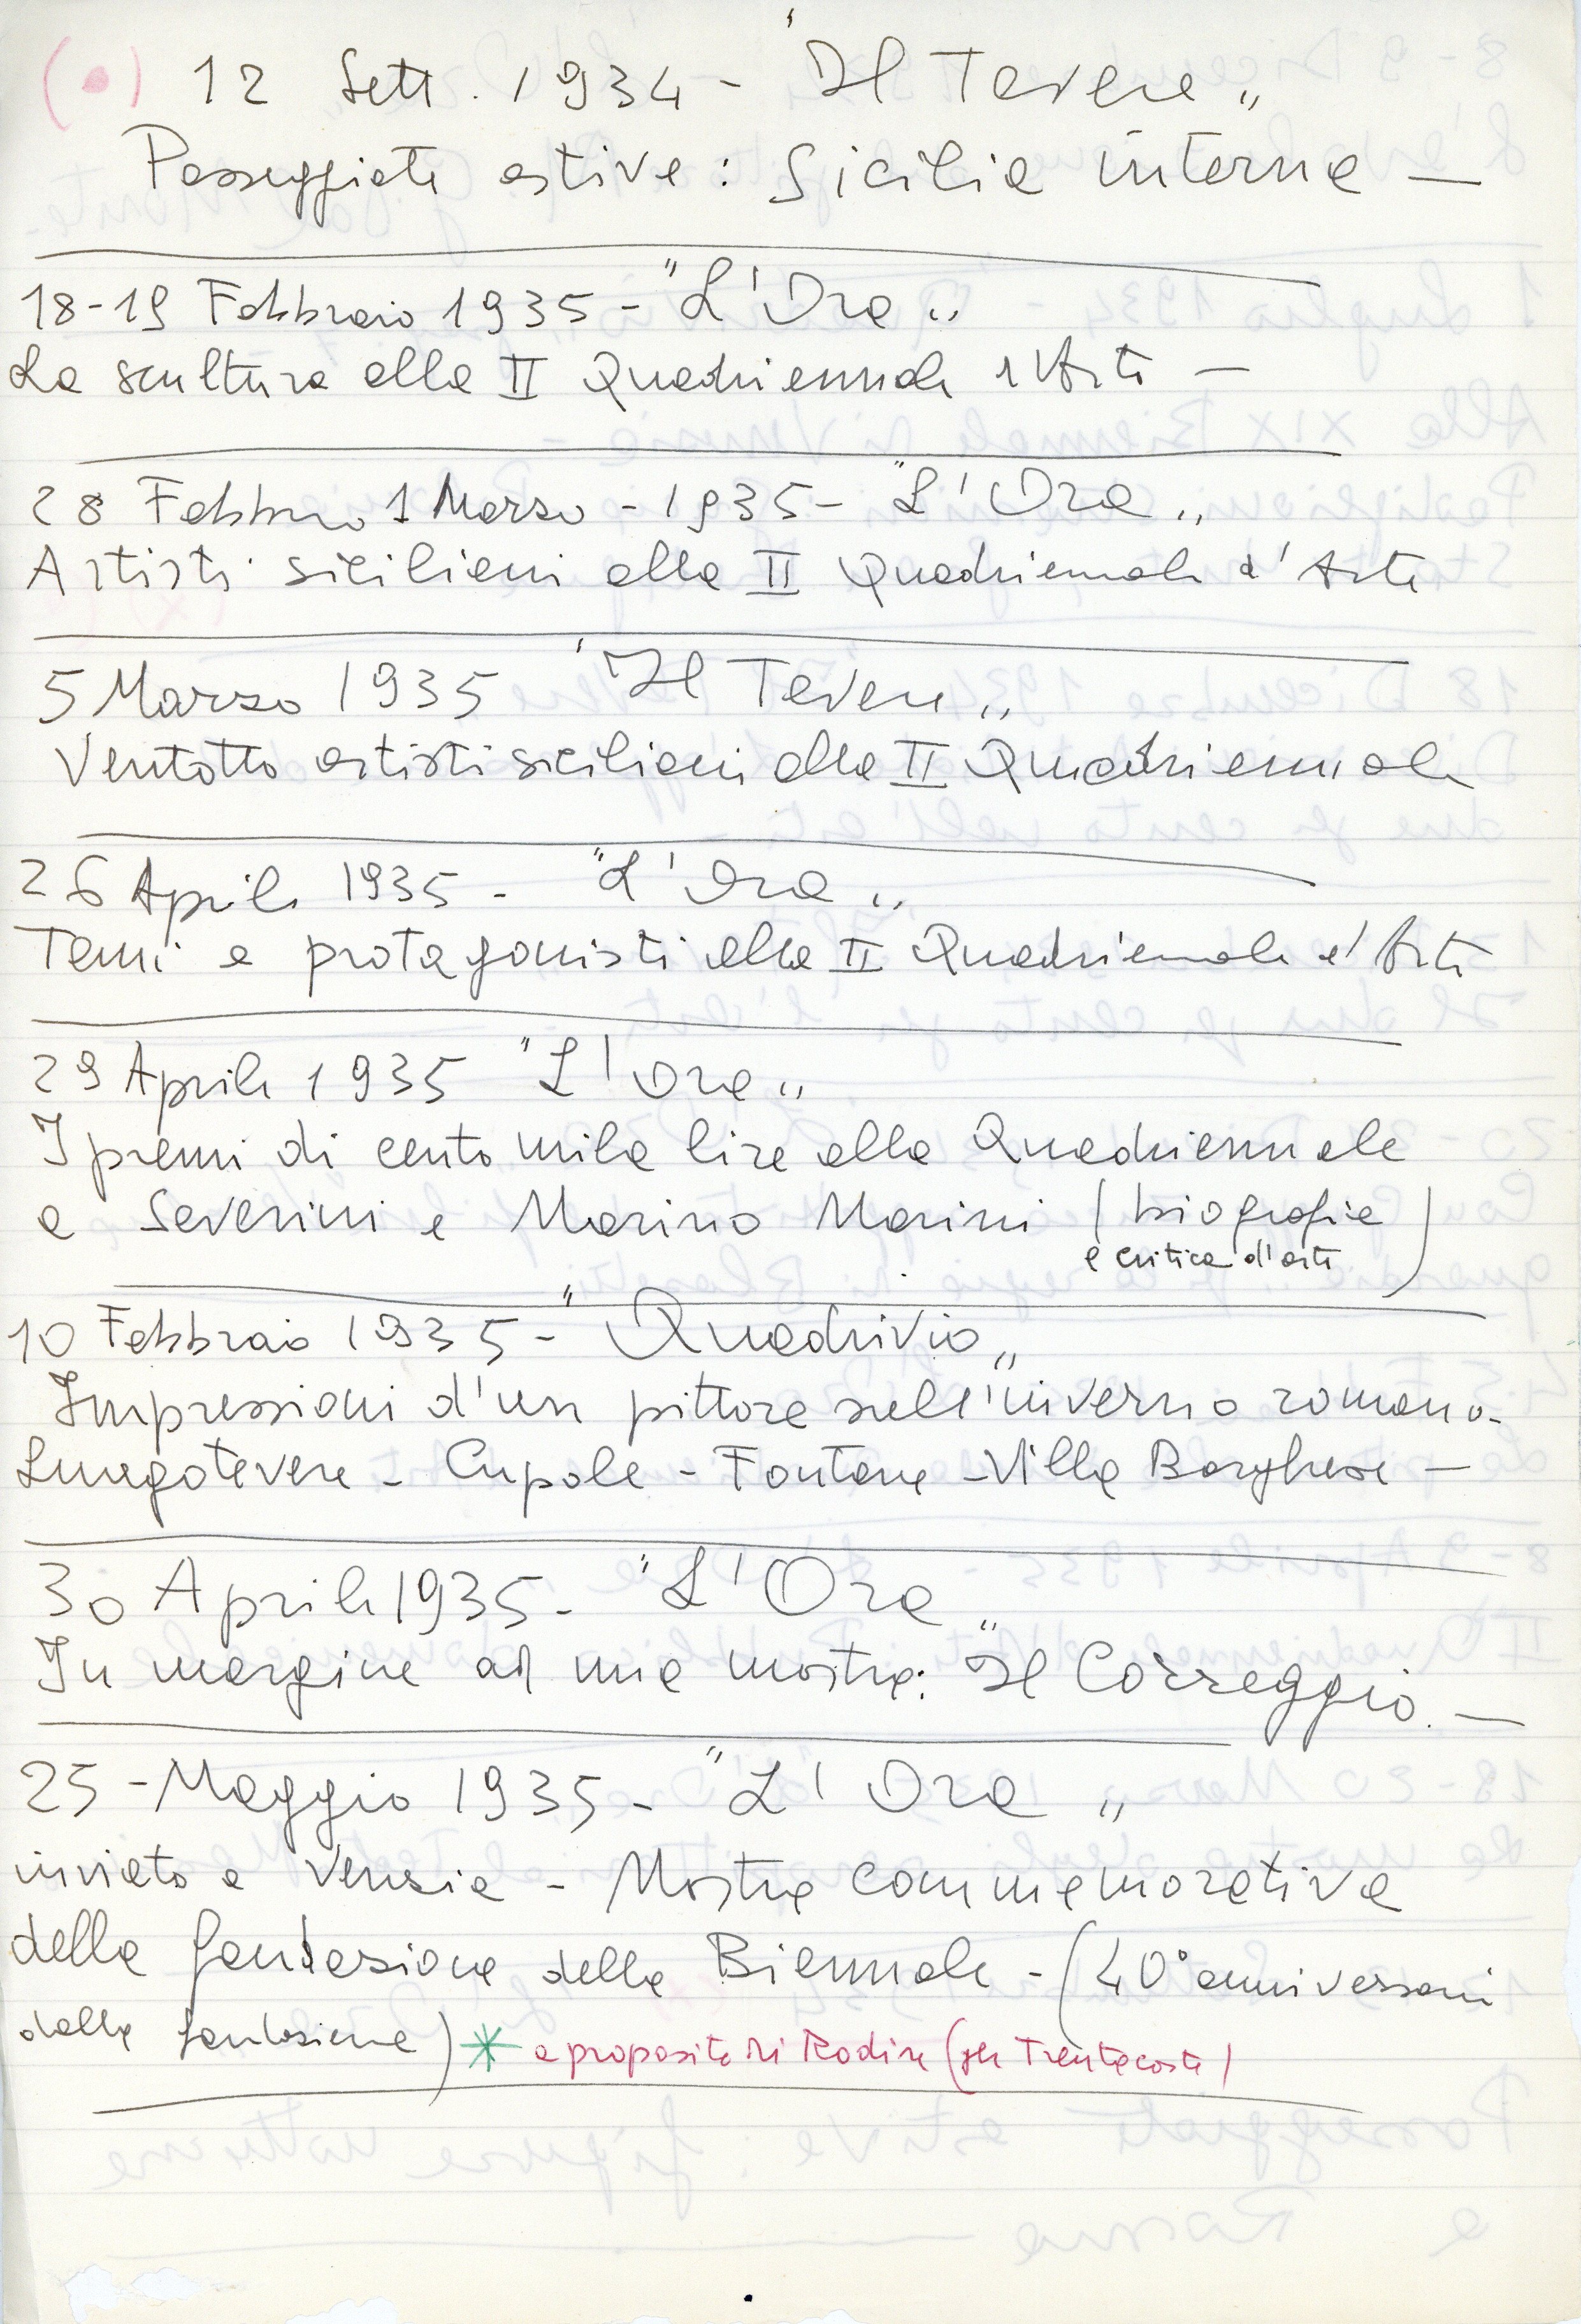 (•) 12 Sett. 1934 - "Il Tevere"
Passeggiate estive: Sicilia interna —
18-19 Febbraio 1935 - "L'Ora"
La scultura alla II Quadriennale d'Arte —
28 Febbraio 1 Marzo - 1935 - "L'Ora"
Artisti siciliani alla II Quadriennale d'Arte
5 Marzo 1935 "Il Tevere"
Ventotto artisti siciliani alla II Quadriennale
26 Aprile 1935 - "L'Ora"
Temi e protagonisti alla II Quadriennale d'Arte
29 Aprile 1935 "L'Ora"
I premi di cento mila lire alla Quadriennale
a Severini e Marino Marini (biografia
e critica d'arte)
10 Febbraio 1935 - "Quadrivio"
Impressioni d'un pittore sull'inverno romano -
Lungotevere - Cupole - Fontane - Villa Borghese —
30 Aprile 1935 - "L'Ora"
In margine ad una mostra: Il Correggio. —
25 - Maggio 1935 - "L'Ora"
inviato a Venezia - Mostra commemorativa
della fondazione della Biennale - (40° anniversario
della fondazione) * a proposito di Rodin (per Trentacoste)